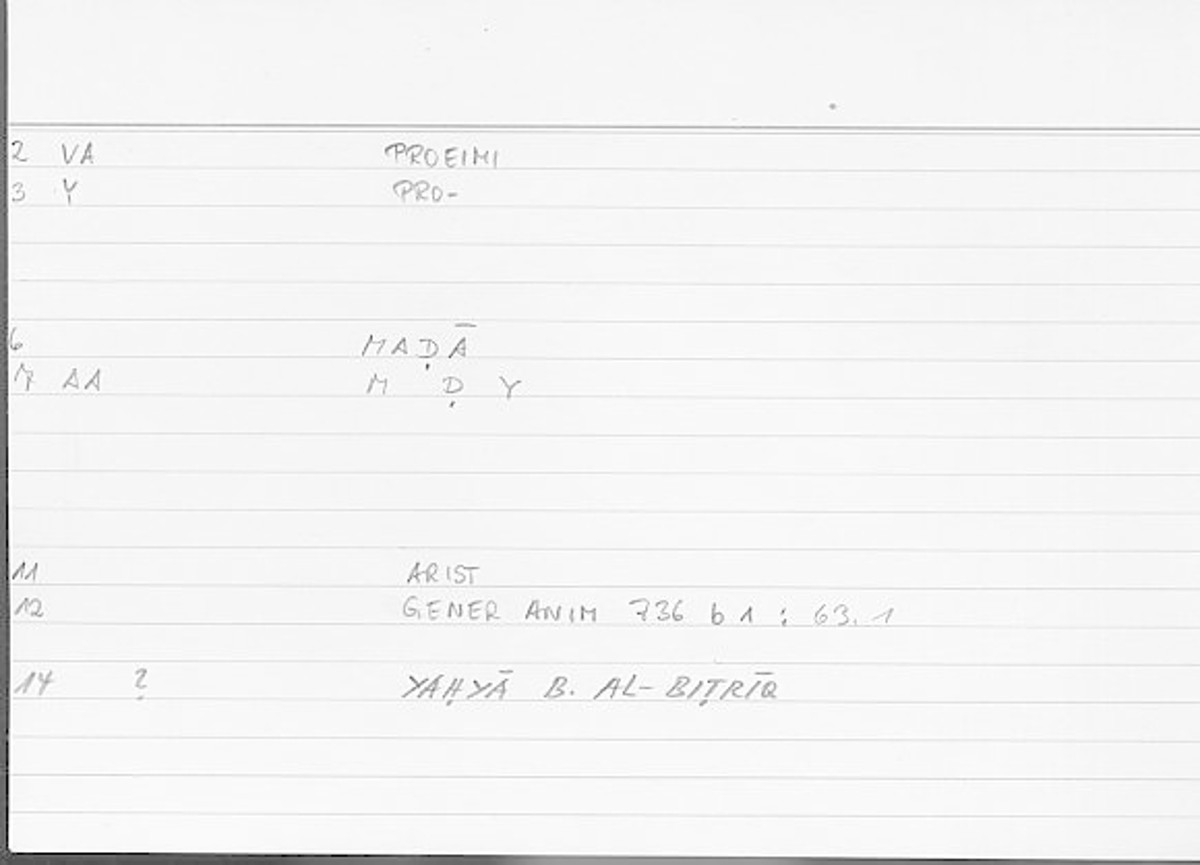 2 VA PROEIMI
3 Y PRO-
6 MAḌĀ
7 AA M Ḍ Y
11 ARIST
12 GENER ANIM 736 b 1 : 63.1
14 ? YAḤYĀ B. AL-BIṬRĪQ